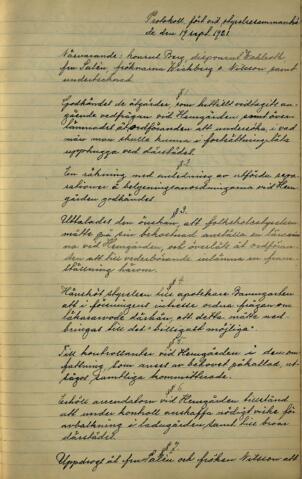 Protokoll, fört vid styrelsesammanträ-
de den 19 sept. 1921.
Närvarande: konsul Berg, disponent
fru Palén, fröknarna Wickberg o. Nilsson samt
undertecknad.
§ 1.
Godkändes de åtgärder, som hittills vidtagits an-
gående vedfrågan vid Hemgården samt över-
lämnades åt ordföranden att undersöka, i vad
mån man skulle kunna i förhållningslåta
upphugga ved därstädes.
§ 2.
En räkning med anledning av utförda repa-
rationer å belysningsanordningarna vid Hem-
gården godkändes.
§ 3.
Uttalades den önskan, att folkskolestyrelsen
måtte på sin bekostnad anställa en
vid Hemgården, och överläts åt ordföran-
den att till vederbörande inlämna en fram-
ställning härom.
§ 4.
Hänsköt styrelsen till apotekare Baumgarden
att i föreningens intresse ordna frågan om
läkarearvode därhän, att detta måtte ned-
bringas till det "billigast möjliga".
§ 5.
Till kontrollanter vid Hemgården i den om-
fattning, som anses av behovet påkallad, ut-
sågos samtliga kommitterade.
§ 6.
Erhöll arrendatorn vid Hemgården tillstånd
att under kontroll anskaffa nödigt virke för
avbalkning i ladugården samt till broar
därstädes.
§ 7.
Uppdrogs åt fru Palén och fröken Nilsson att